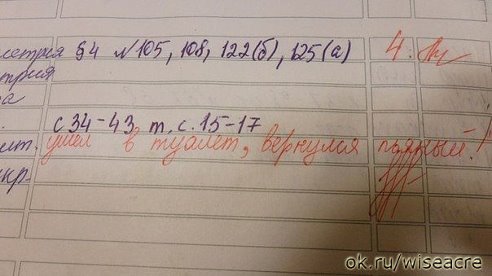 метрия §4 №105, 108, 122(б), 125(а) 4.
трия
а
с 34-43, т. с. 15-17
ушел в туалет, вернулся пьяный!
ok.ru/wiseacre